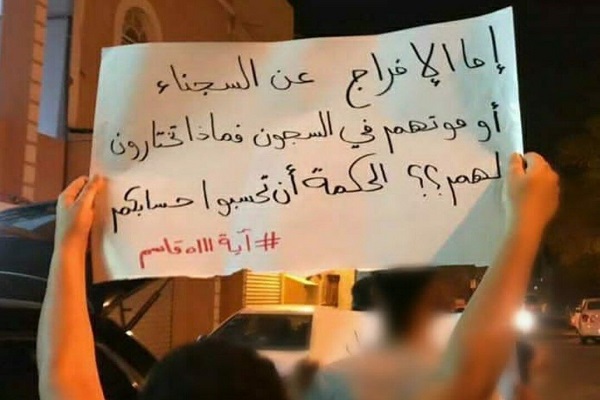 إما الإفراج عن السجناء
أو موتهم في السجون فماذا تختارون
لهم؟؟ الحكمة أن تحسبوا حسابكم
#آية الله قاسم